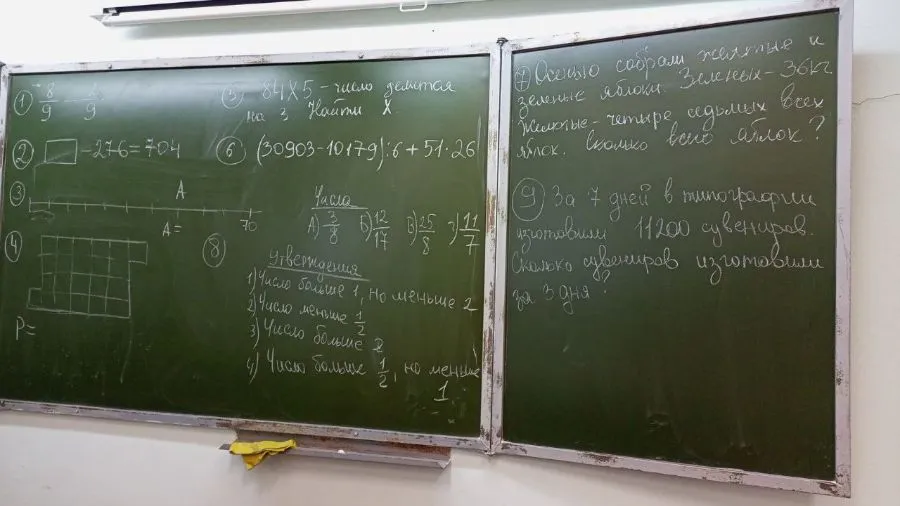 ① 8/9 - /9
⑤ 84X5 - число делится
на 3 Найти X
② □ -276=704
⑥ (30903-10179):6+51·26
③ A
A=
④
P=
⑧ Числа
А) 3/8 Б) 12/17 В) 25/8 Г) 11/7
Утверждения
1) Число больше 1, но меньше 2
2) Число меньше 1/2
3) Число больше 2
4) Число больше 1/2, но меньше
1
⑦ Осенью собрали желтые и
зеленые яблоки. Зеленых - 36кг.
Желтые - четыре седьмых всех
яблок. Сколько всего яблок?
⑨ За 7 дней в типографии
изготовили 11200 сувениров.
Сколько сувениров изготовили
за 3 дня?